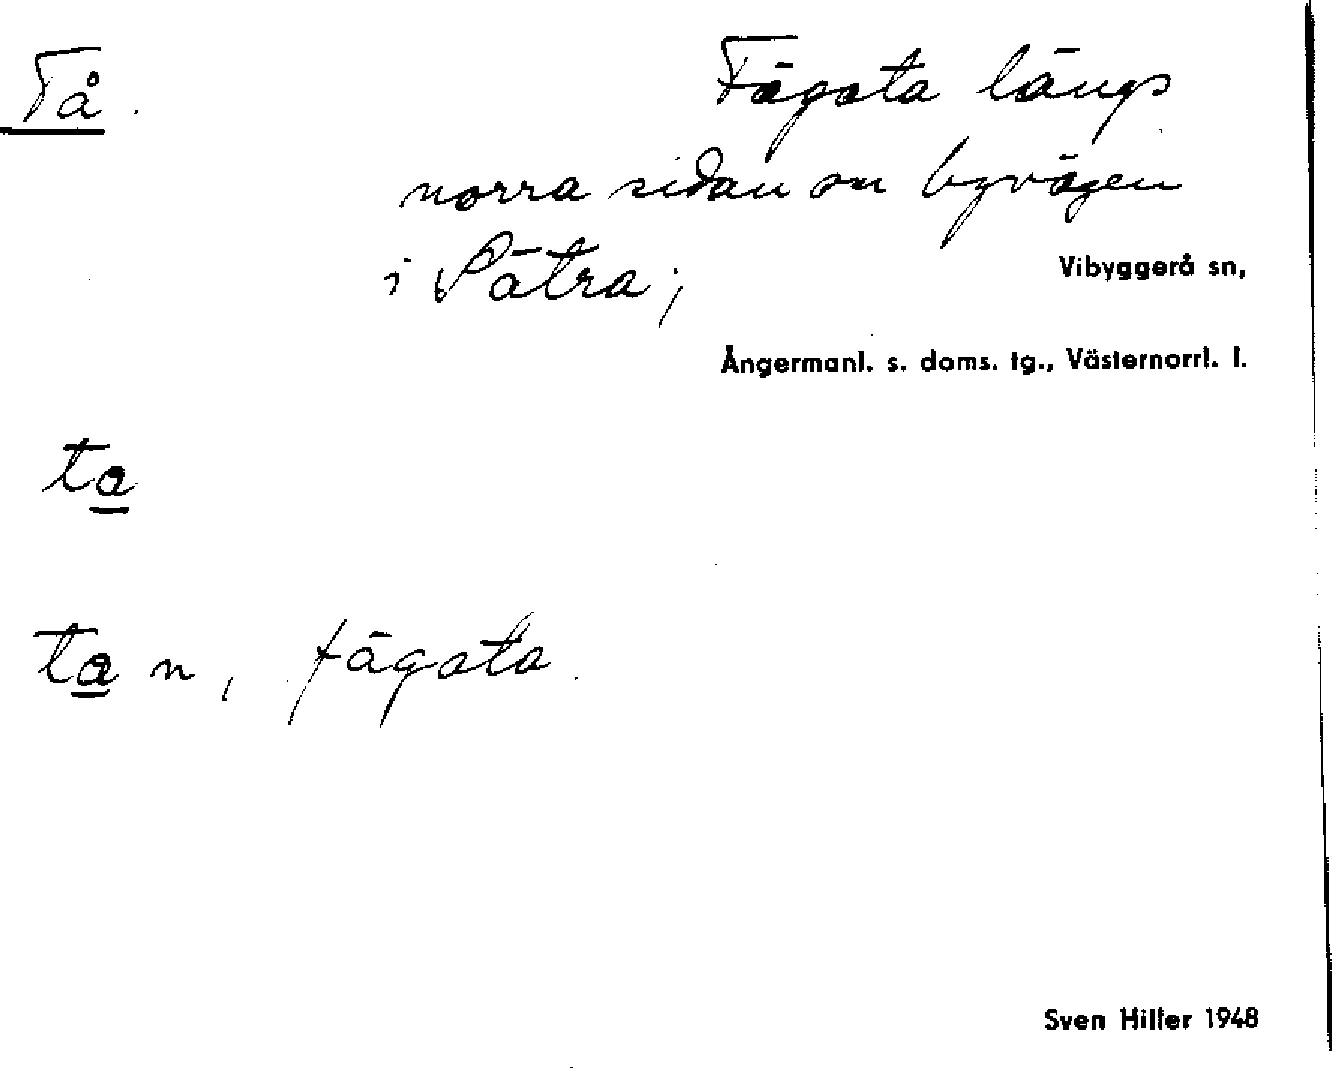 Tå.
Fägata längs
norra sidan om byvägen
i Sätra;
Vibyggerå sn,
Ångermanl. s. doms. tg., Västernorrl. l.
ta
ta n, fägata.
Sven Hiller 1948